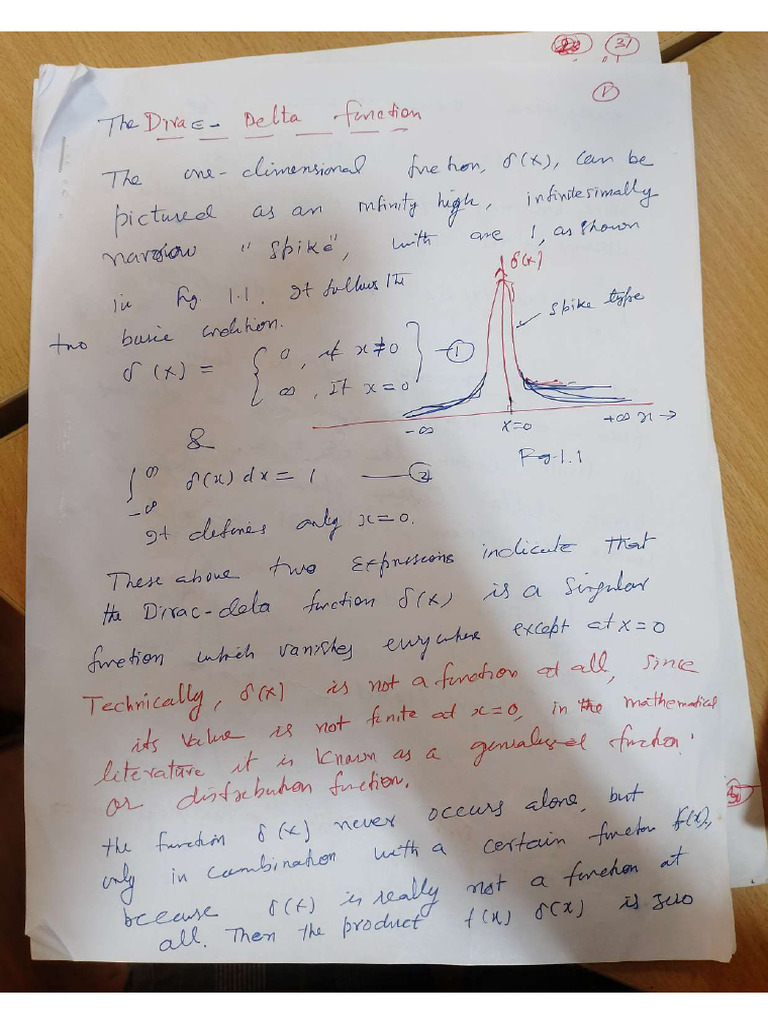 31
1
The Dirac- Delta function
The one-dimensional function, δ(x), can be
pictured as an infinity high, infinitesimally
narrow "spike", with are 1, as shown
in Fig 1.1. It follows the
two basic condition.
δ(x)
spike type
δ(x) = { 0, if x≠0
∞, If x=0 } — ①
-∞ x=0 +∞ x →
Fig-1.1
&
∫_{-∞}^{∞} δ(x) dx = 1 — ②
It defines only x=0.
These above two Expressions indicate that
the Dirac-delta function δ(x) is a singular
function which vanishes everywhere except at x=0
Technically, δ(x) is not a function at all, since
its value is not finite at x=0, in the mathematical
literature it is known as a genialised function.
or distribution function.
the function δ(x) never occurs alone, but
only in combination with a certain function f(x),
because δ(x) is really not a function at
all. Then the product f(x) δ(x) is zero